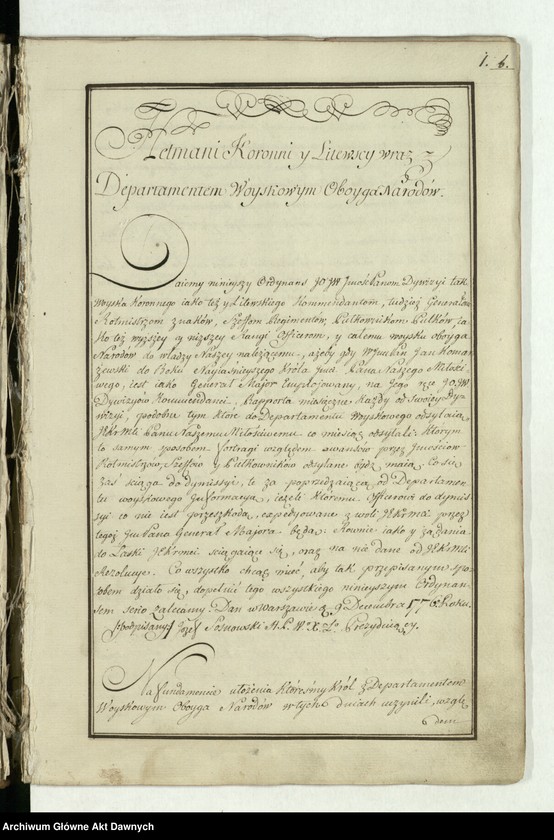 1. 6.
Hetmani Koronni y Litewscy wraz z
Departamentem Woyskowym Oboyga Narodów.
Daiemy ninieyszy Ordynans JO JW Jmość Panom Dywizyi tak
Woyska Koronnego iako też y Litewskiego Kommendantom, tudzież Generałom
Rotmistrzom znaków, Szeffom Regimentów, Pułkownikom Pułków, ia-
ko też wyższey y niższey Rangi Officerom, y całemu woysku oboyga
Narodów do władzy Naszey należącemu, ażeby gdy W Jmć Pan Jan Koma
rzewski do Boku Nayiaśnieyszego Króla Jmci Pana Naszego Miłości-
wego, iest iako Generał Major Employowany, na Jego ręce JO JW
Dywizyów Kommendanci, Rapporta miesięczne każdy od swoiey Dy-
wizyi, podobne tym które do Departamentu Woyskowego odsyłaią
JKRMci Panu Naszemu Miłościwemu co miesiąc odsyłali: którym
to samym sposobem Fortragi względem awansów przez Jmciów
Rotmistrzów, Szeffów y Pułkowników odsyłane bydź maią. Co się
zaś ściąga do dymissyi, te za poprzedzaiącą od Departamen-
tu woyskowego Informacyą, ieżeli któremu Officerowi do dymis-
syi co nie iest przeszkodą, expedyowane z woli JKRMci przez
tegoż Jmć Pana Generał Majora będą: Równie iako y żądania
do Łaski JKRMci ściągaiące się, oraz na nie dane od JKRMci
Rezolucye. Co wszystko chcąc mieć, aby tak przepisanym spo-
sobem działo się, dopełnić tego wszystkiego ninieyszym Ordynan-
sem serio zalecamy. Dan w Warszawie d. 9 Decembra 1776 Roku.
(podpisany) Józef Sosnowski H. P. W. X. L. Prezyduiący.
Na fundamencie ułożenia któreśmy Król z Departamentem
Woyskowym Oboyga Narodów w tych dniach uczynili, wzglę
dem
Archiwum Główne Akt Dawnych